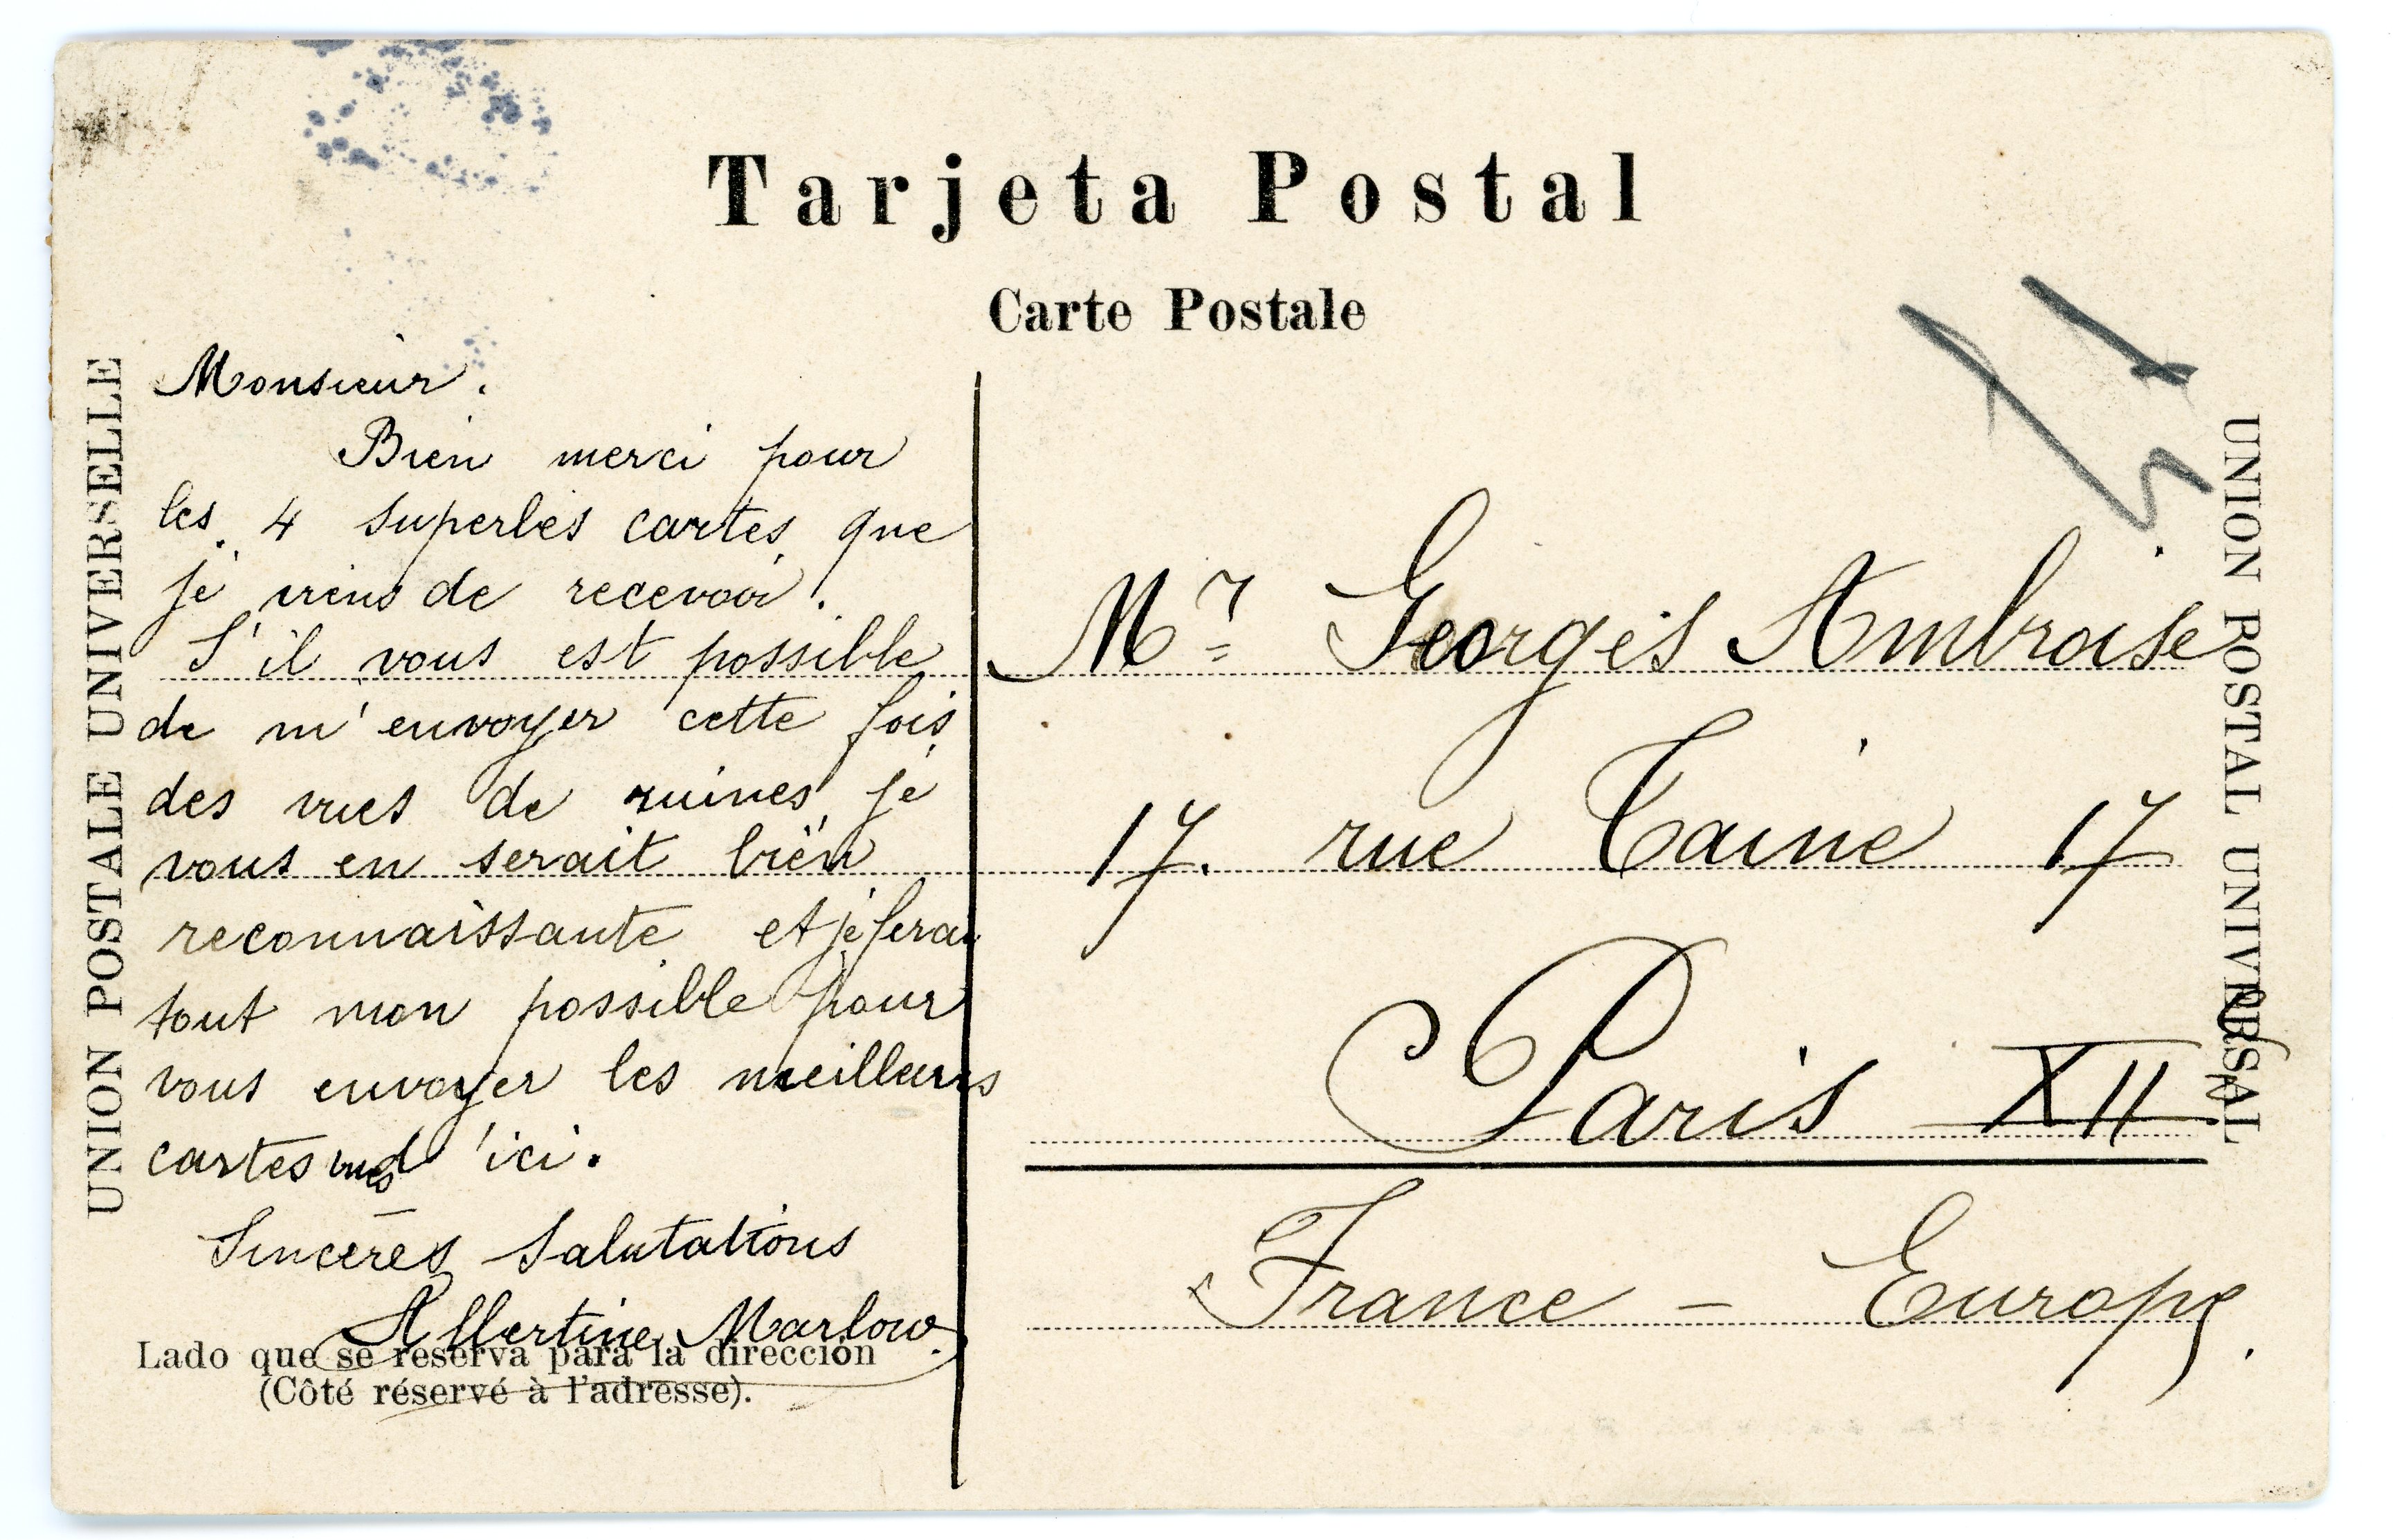 Tarjeta Postal
Carte Postale
UNION POSTALE UNIVERSELLE
Monsieur.
Bien merci pour
les 4 superbes cartes que
je viens de recevoir.
S'il vous est possible
de m'envoyer cette fois
des vues de ruines, je
vous en serait bien
reconnaissante et je ferai
tout mon possible pour
vous envoyer les meilleurs
cartes vues d'ici.
Sincères Salutations
Albertine Marlow.
Lado que se reserva para la dirección
(Côté réservé à l'adresse).
Mr Georges Ambroise
17. rue Taine 17
Paris XII e
France - Europe.
UNION POSTAL UNIVERSAL